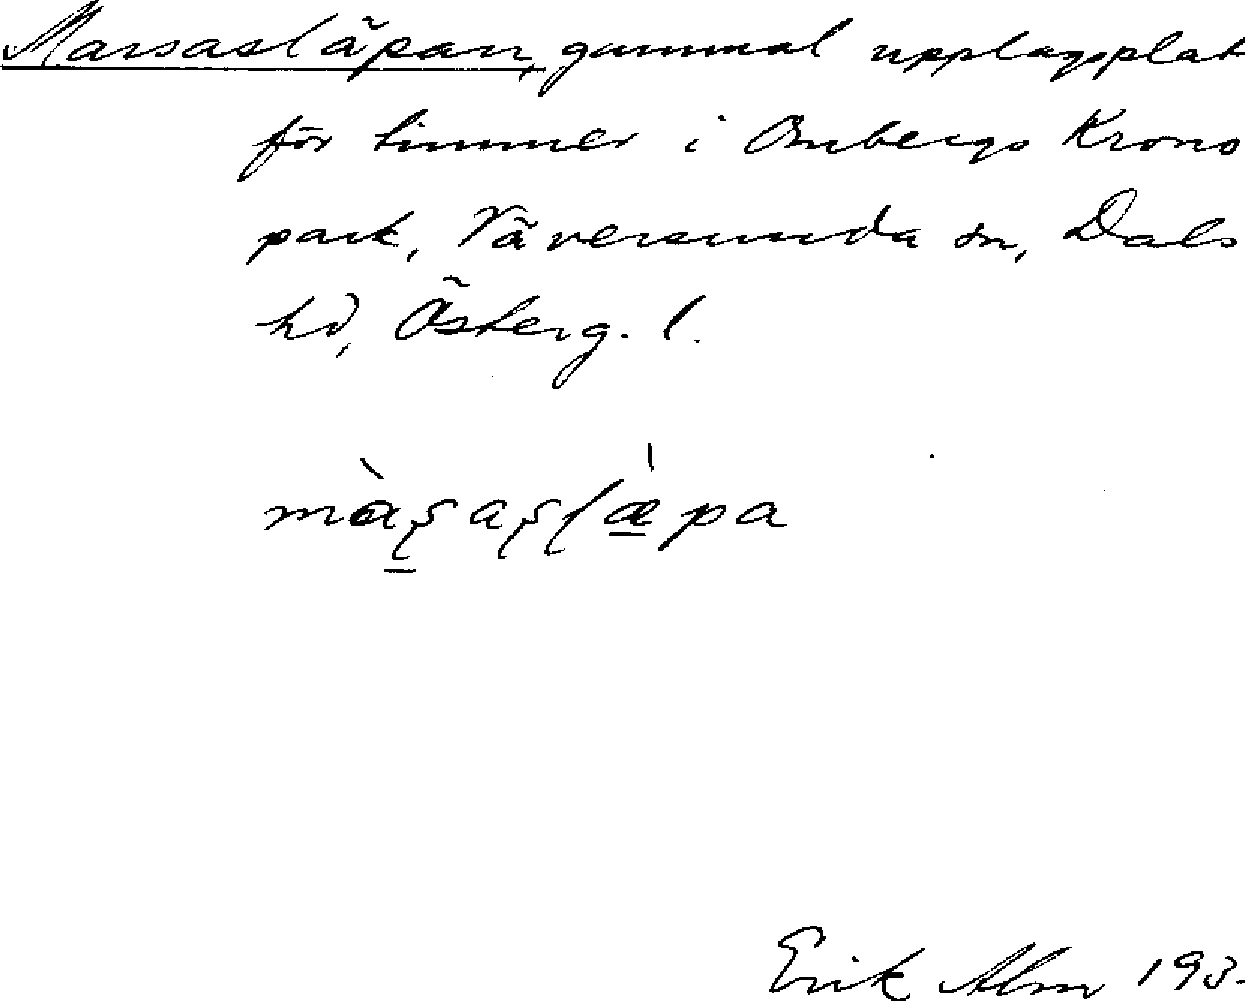 Marsasläpan, gammal upplagsplat
för timmer i Ombergs Krono
park, Väversunda sn, Dals
hd, Österg. l.
màʂaʂlæ̀pa
Erik Alm 193